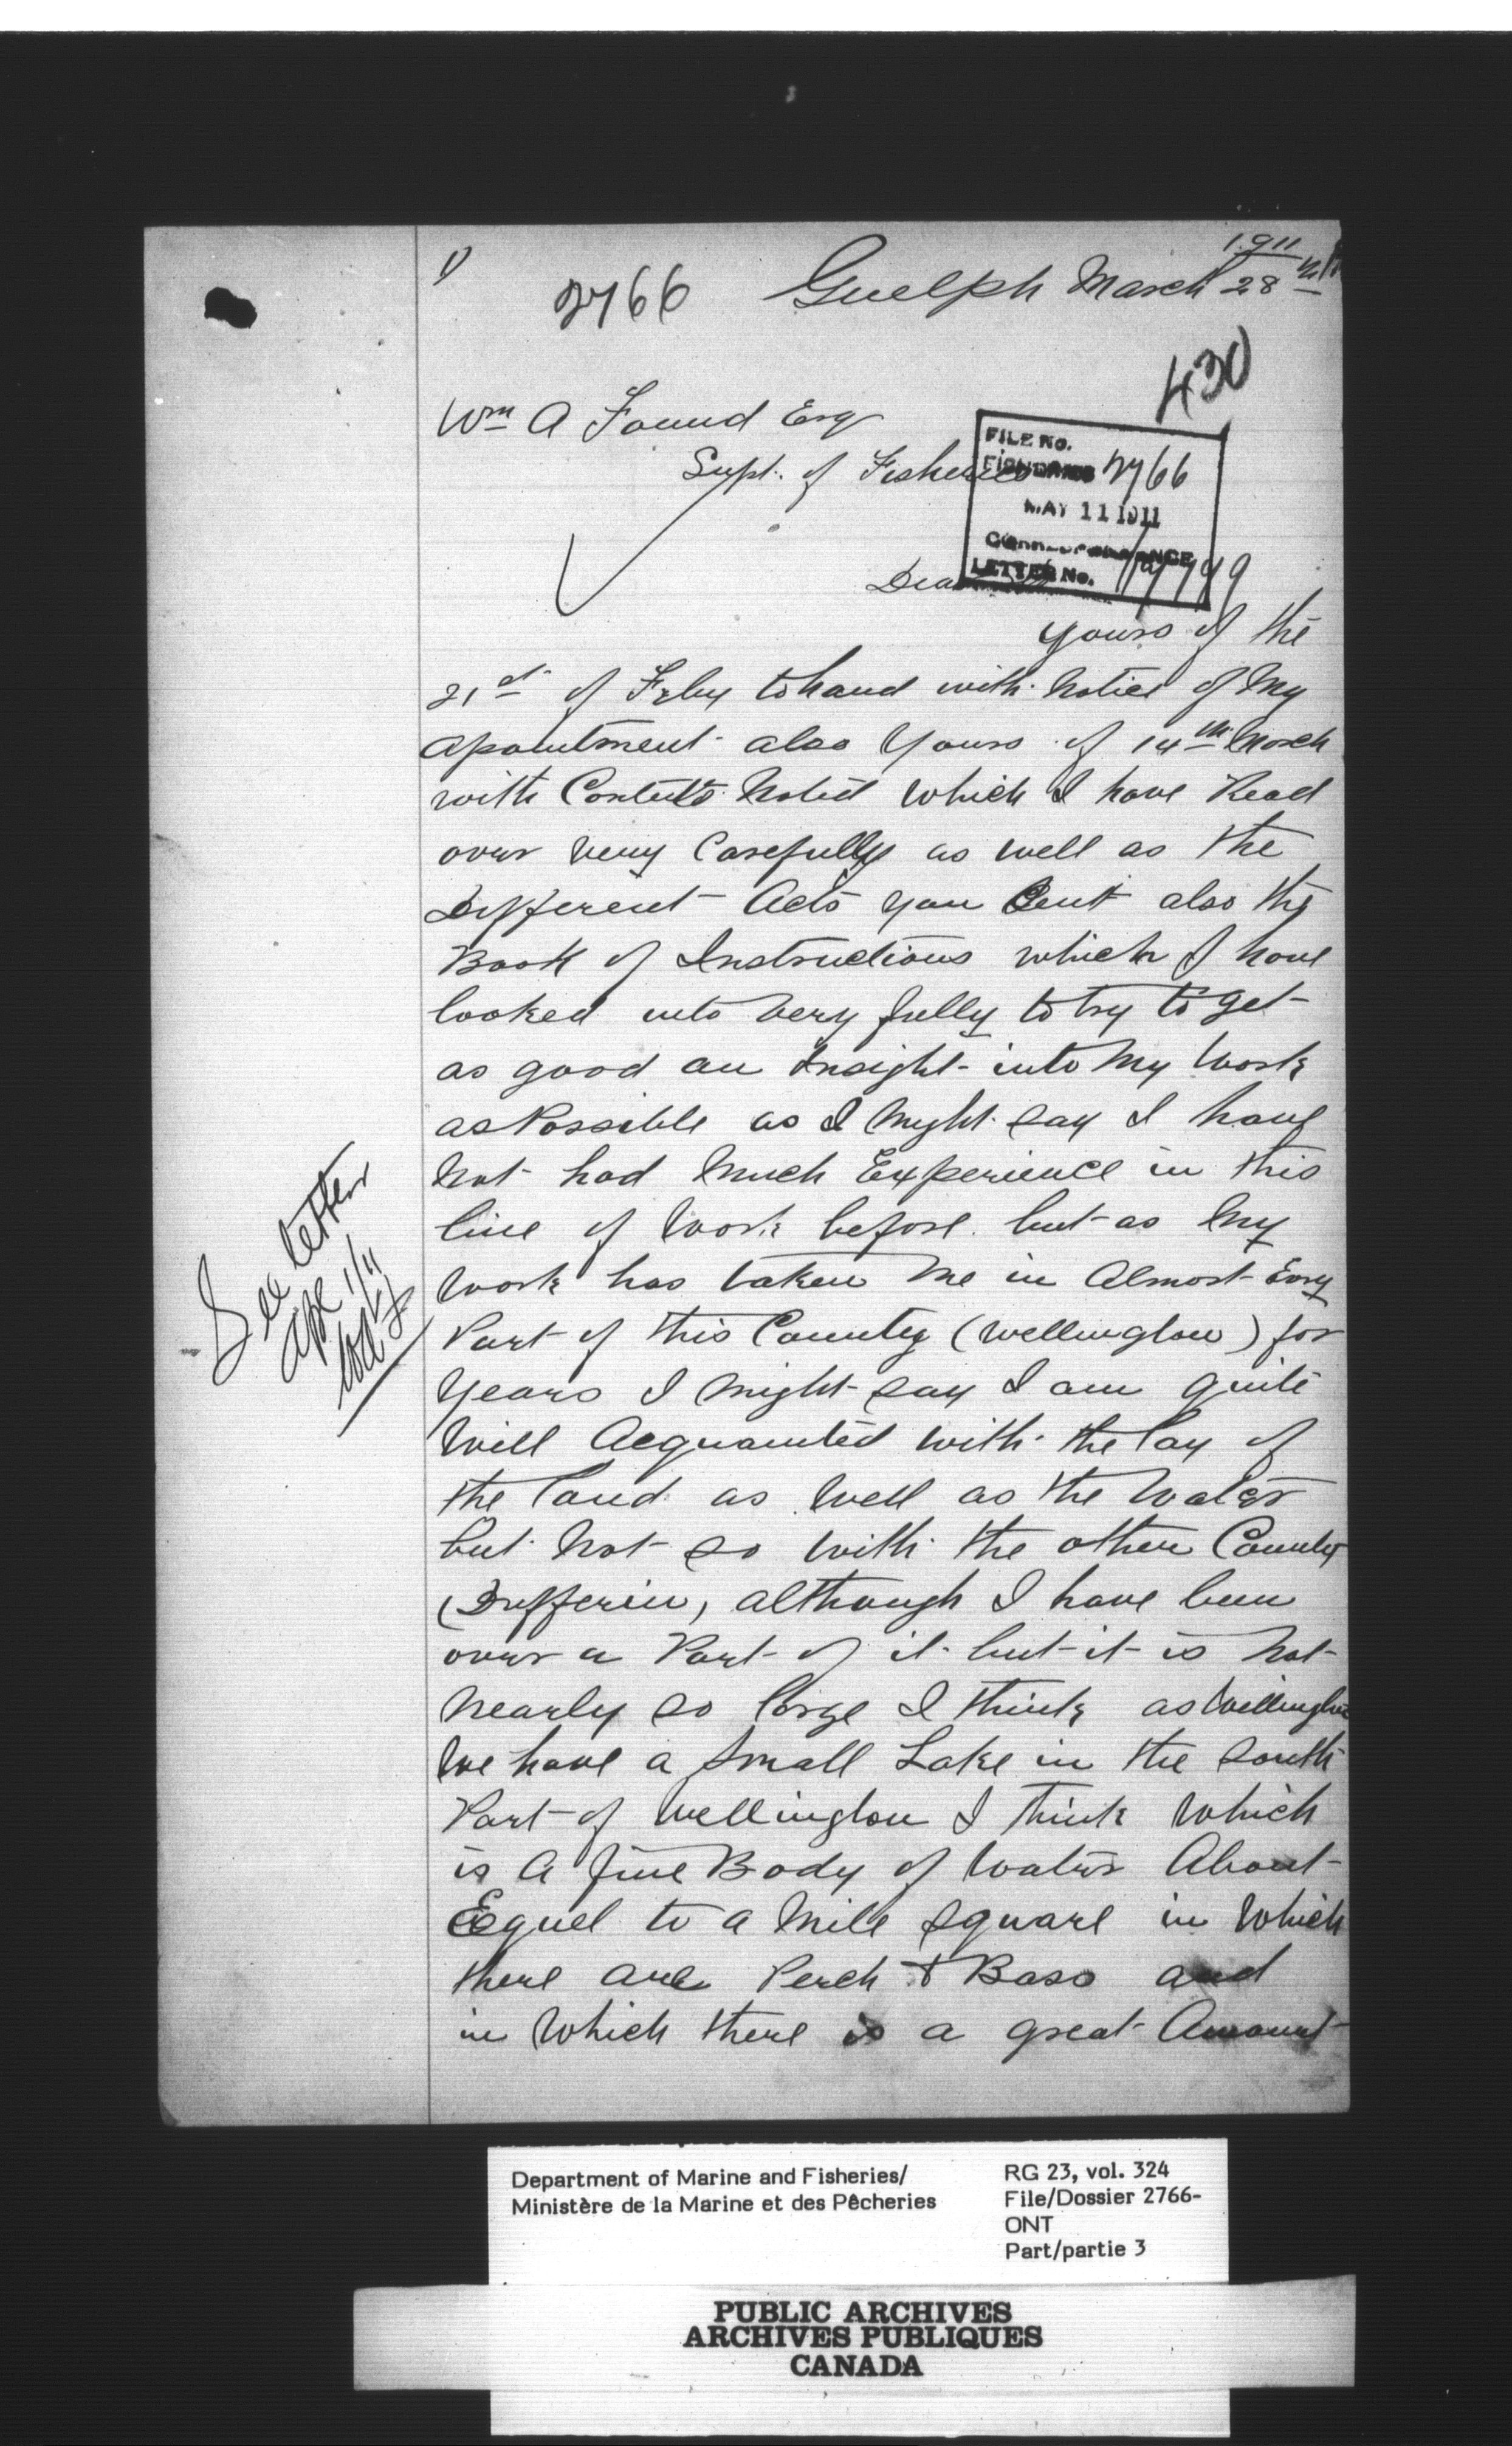 1)
2766
Guelph March 28th
1911
430
Wm A Found Esq
Supt. of Fisheries
FILE No.
FISHERIES 2766
MAY 11 1911
CORRESPONDENCE
LETTER No.
Dear
yours of the
21st of Feby to hand with Notice of My
Apointment also Yours of 14th March
with Contents Noted which I have Read
over very Carefully as well as the
Different Acts you Sent also the
Book of Instructions which I have
looked into very fully to try to get
as good an Insight into My Work
as Possible as I Might say I have
Not had Much Experience in this
line of Work before but as My
Work has taken Me in Almost Evry
Part of this County (Wellington) for
Years I Might say I am quite
Well Acquainted with the lay of
the land as Well as the Water
but Not so with the other County
(Dufferin, although I have been
over a Part of it but it is Not
Nearly so large I think as Wellington
We have a Small Lake in the South
Part of Wellington I think Which
is A fine Body of Water About
Eequel to a Mile Square in Which
there are Perch & Bass and
in Which there is a great Amount
See letter
Department of Marine and Fisheries/
Ministère de la Marine et des Pêcheries
RG 23, vol. 324
File/Dossier 2766-
ONT
Part/partie 3
PUBLIC ARCHIVES
ARCHIVES PUBLIQUES
CANADA